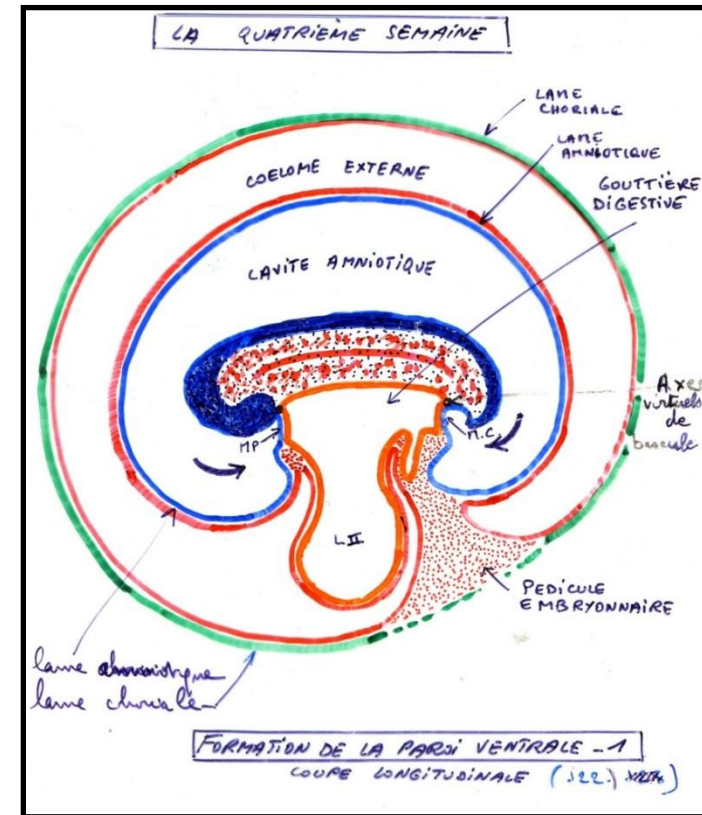 LA QUATRIEME SEMAINE
LAME
CHORIALE
LAME
AMNIOTIQUE
GOUTTIÈRE
DIGESTIVE
COELOME EXTERNE
CAVITE AMNIOTIQUE
Axes
virtuels
de
bascule
MP
M.C
L II
PEDICULE
EMBRYONNAIRE
lame
lame choriale
FORMATION DE LA PAROI VENTRALE _ 1
COUPE LONGITUDINALE (J22.)